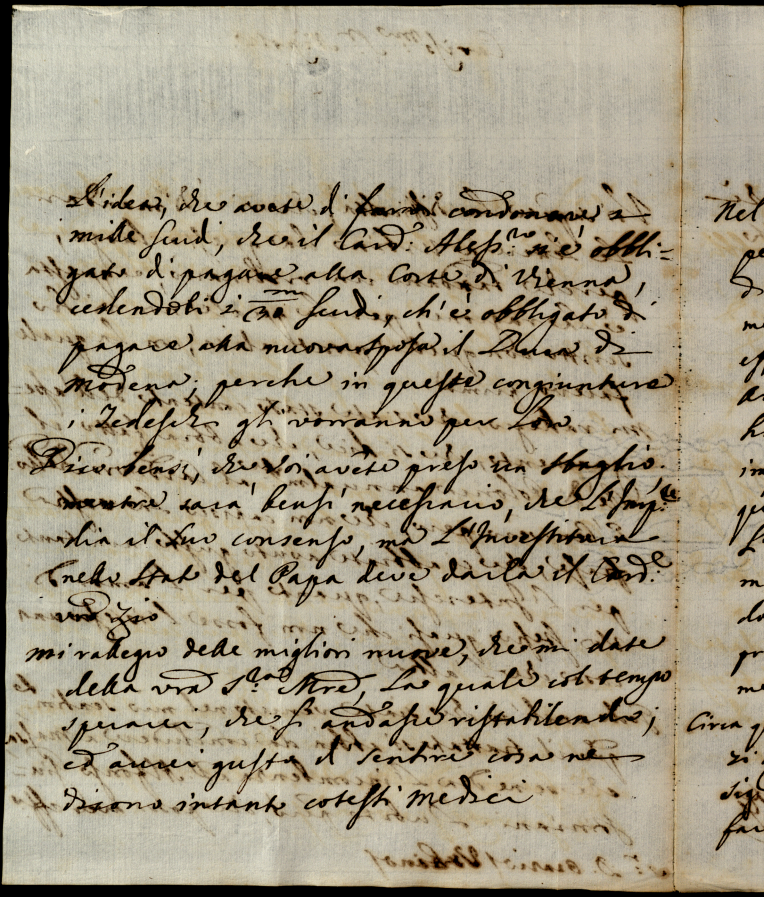 L'idea, che avete di farvi condonare i
mille scudi, che il Card: Aless:ro si è obbli=
gato di pagare alla Corte di Vienna,
cedendoli i m/30 scudi, ch'è obbligato di
pagare alla nuova sposa il Duca di
Modena; perche in queste congiunture
i Tedeschi gli vorranno per loro
Dico bensì, che voi avete preso un sbaglio.
mentre sarà bensì necessario, che l'Imp:re
dia il suo consenso, mà l'Investitura
nello Stato del Papa deve darla il Card:e
vro Zio
mi rallegro delle migliori nuove, che mi date
della vra S:ra Mre, la quale col tempo
sperarei, che si andasse ristabilendo;
ed averei gusto di sentire cosa ne
dicono intanto cotesti Medici
Nel
pe
di
me
im
me
do
pr
me
Circa q
zi
sig
far